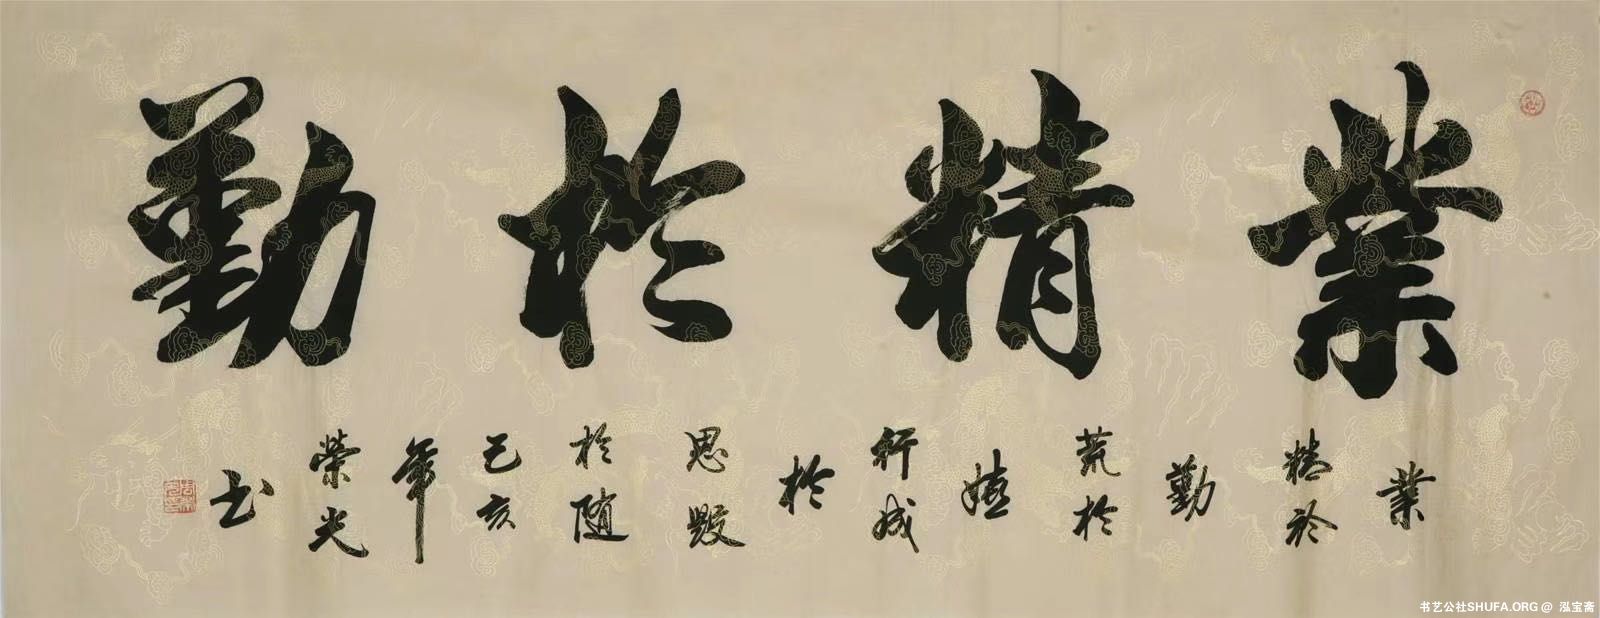 業精於勤
業精於勤荒於嬉行成於思毀於隨己亥年榮光书
书艺公社SHUFA.ORG @ 泓宝斋